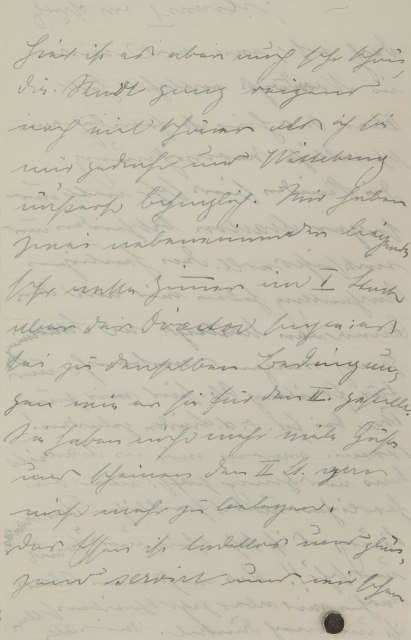 Hier ist es aber auch sehr schön,
die Stadt ganz reizend
noch viel schöner als ich sie
mir gedacht und Witterung
äußerst behaglich. Wir haben
zwei nebeneinander liegende
sehr nette Zimmer im I Stock
aber der Director
bei zu denselben Bedingun-
gen wie er sie für den II. gestellt.
Sie haben nicht mehr viele Gäste
und scheinen den II St. gern
nicht mehr zu belegen.
Das Essen ist tadellos und glän-
zend servirt und wir schon